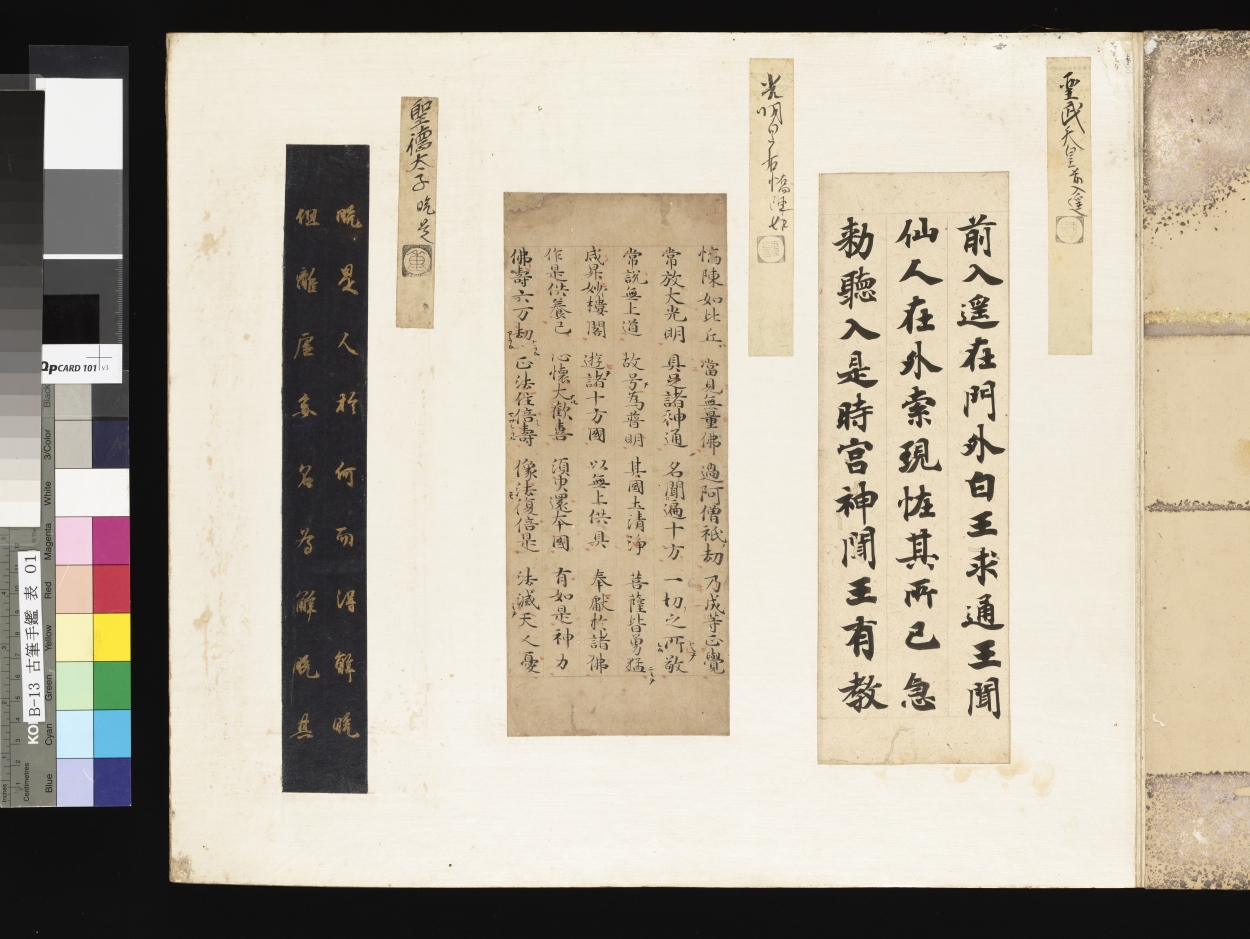 聖武天皇 前入遥
前入遥在門外白王求通王聞
仙人在外索現恠其所已急
勅聽入是時宮神聞王有教
光明皇后 憍陳如
憍陳如比丘 當見無量佛 過阿僧祇劫 乃成等正覺
常放大光明 具足諸神通 名聞遍十方 一切之所敬
常說無上道 故号為普明 其國土清淨 菩薩皆勇猛
咸昇妙樓閣 遊諸十方國 以無上供具 奉獻於諸佛
作是供養已 心懷大歡喜 須臾還本國 有如是神力
佛壽六万劫 正法住倍壽 像法復倍是 法滅天人憂
聖德太子 脫是
脫是人於何而得解脫
但離虛妄名為解脫其
QPCARD 101 v3
B-13 古筆手鑑 表 01
Black
3/Color
White
Magenta
Red
Yellow
Green
Cyan
Blue
Centimetres
Inches